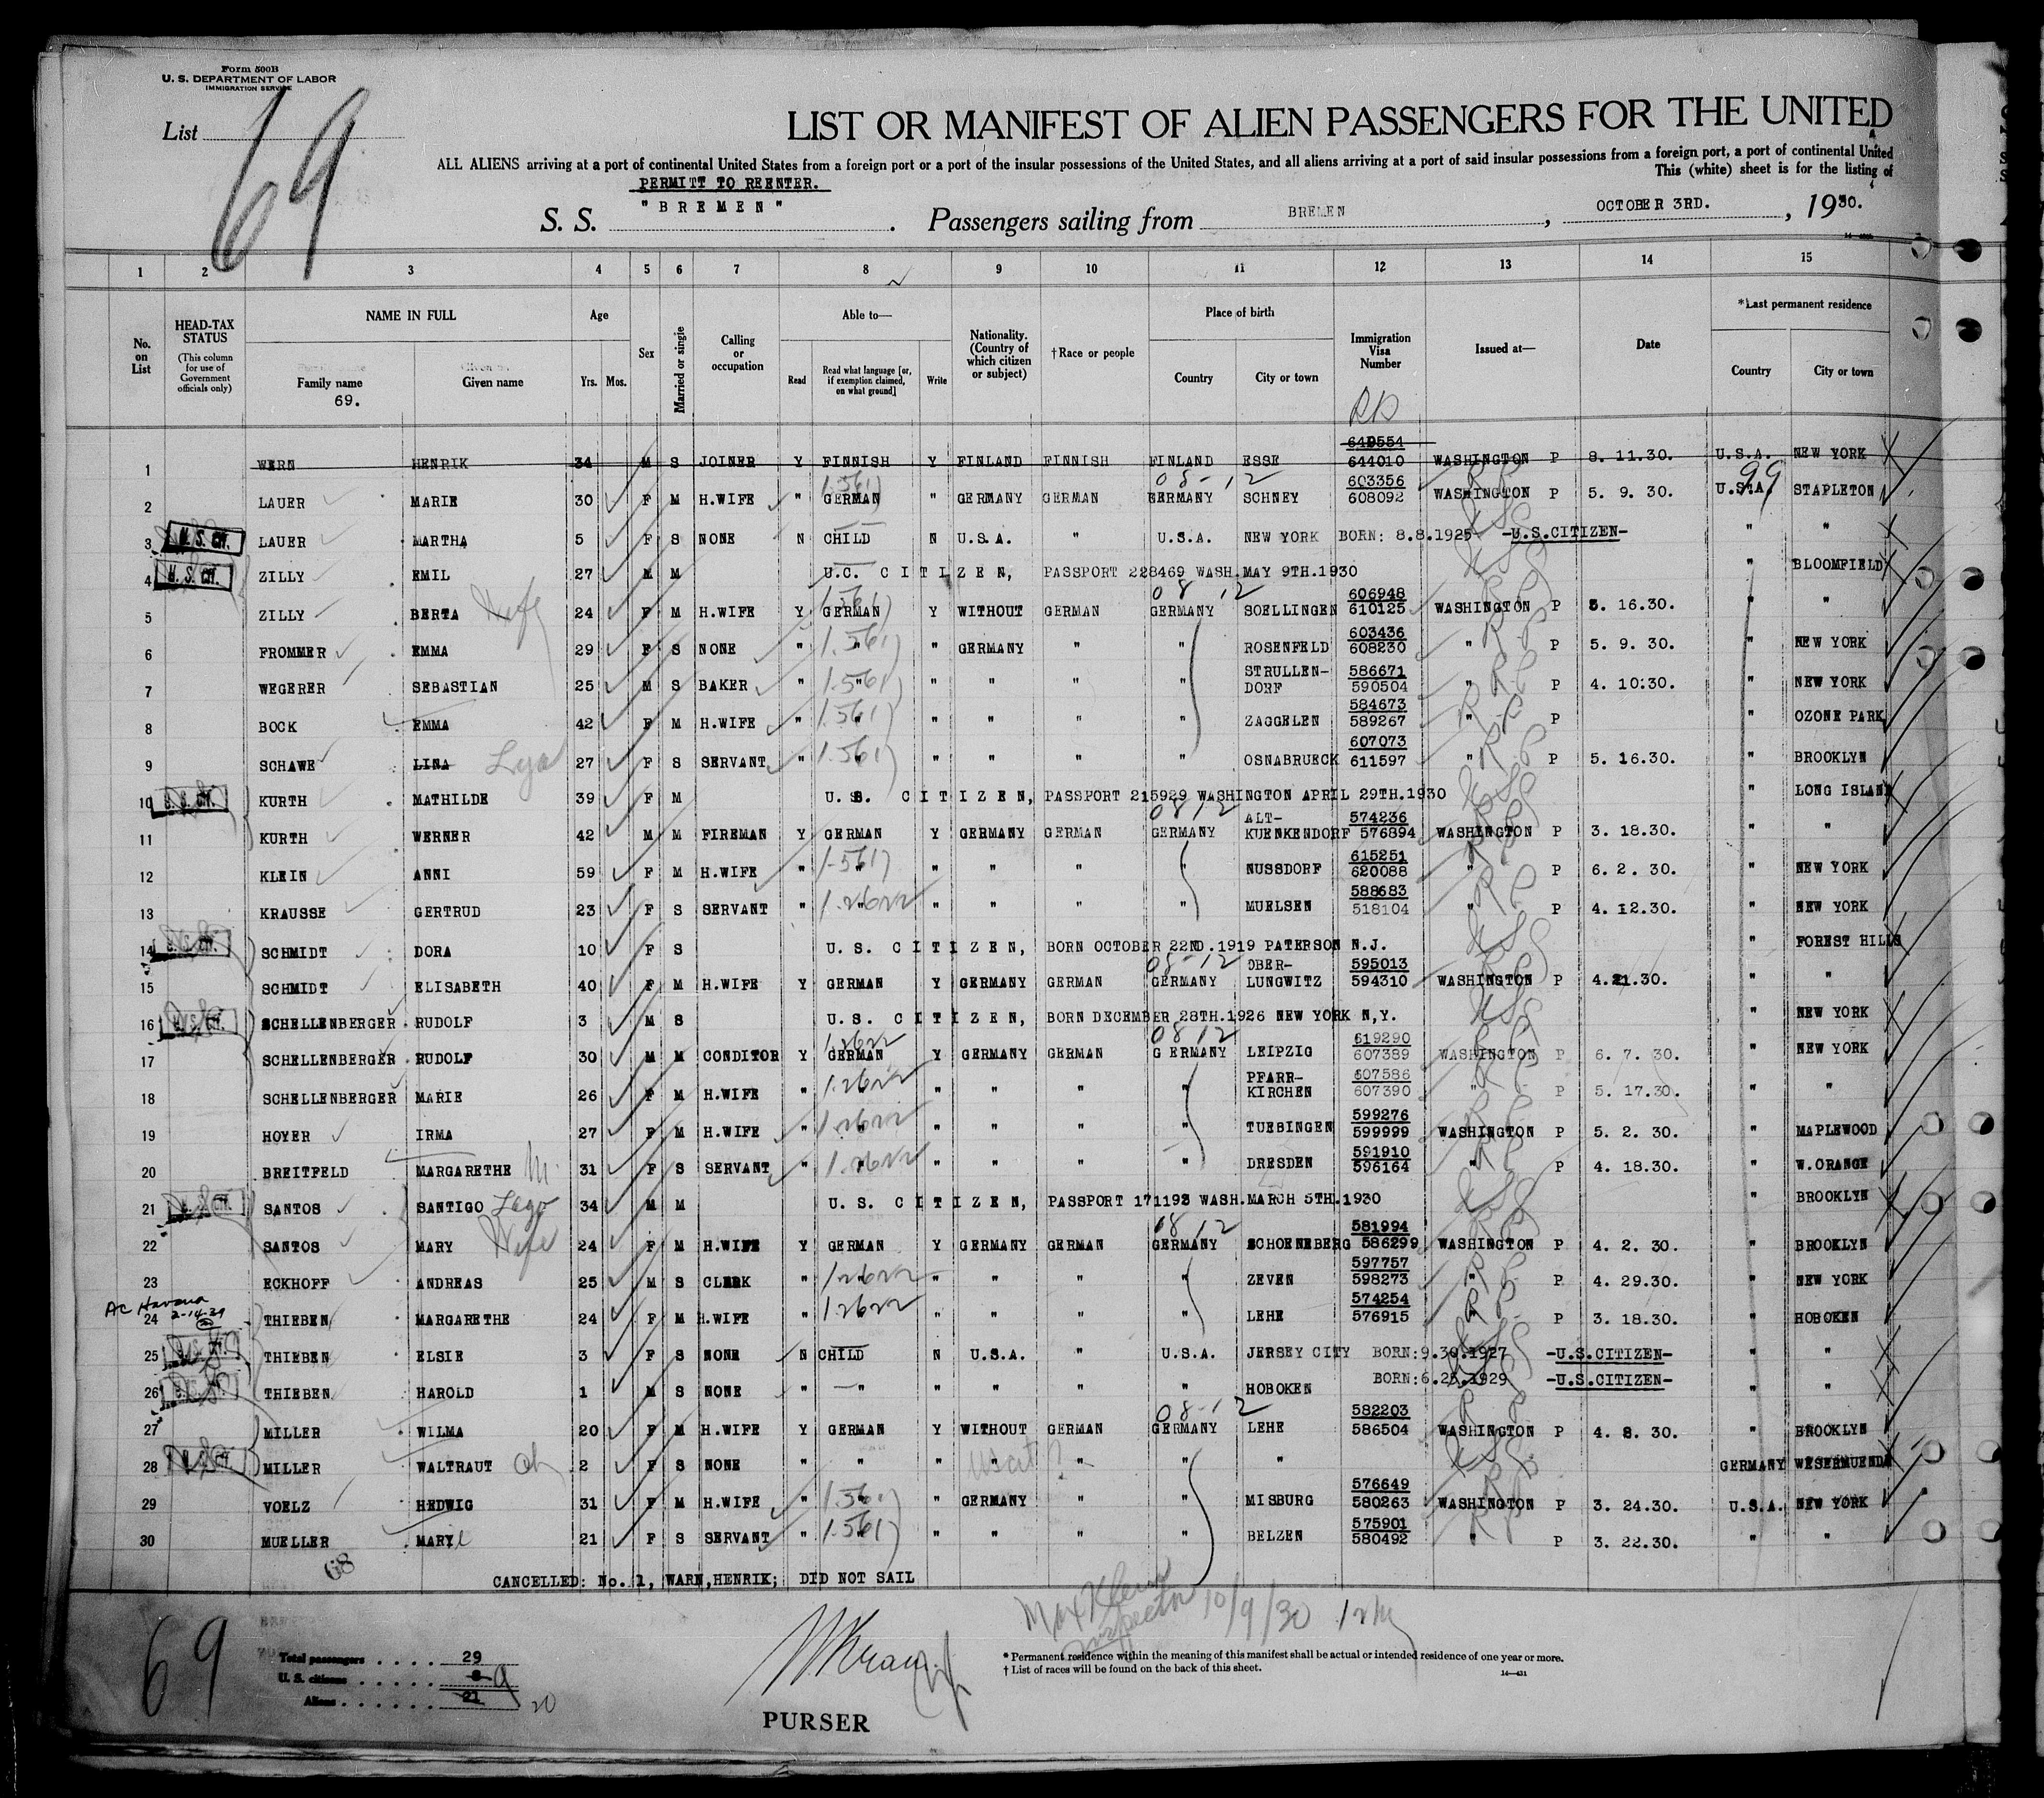 Form 500B
U. S. DEPARTMENT OF LABOR
IMMIGRATION SERVICE
List 69
LIST OR MANIFEST OF ALIEN PASSENGERS FOR THE UNITED
ALL ALIENS arriving at a port of continental United States from a foreign port or a port of the insular possessions of the United States, and all aliens arriving at a port of said insular possessions from a foreign port, a port of continental United
This (white) sheet is for the listing of
PERMITT TO REENTER.
S. S. "BREMEN". Passengers sailing from BREMEN, OCTOBER 3RD., 1930.
1 2 3 4 5 6 7 8 9 10 11 12 13 14 15
No. on List
HEAD-TAX STATUS
(This column for use of Government officials only)
NAME IN FULL
Family name
69.
Given name
Age
Yrs. Mos.
Sex
Married or single
Calling or occupation
Able to—
Read
Read what language [or, if exemption claimed, on what ground]
Write
Nationality. (Country of which citizen or subject)
†Race or people
Place of birth
Country
City or town
Immigration Visa Number
Issued at—
Date
*Last permanent residence
Country
City or town
1 WERN HENRIK 34 M S JOINER Y FINNISH Y FINLAND FINNISH FINLAND ESSE 644010 WASHINGTON P 8. 11.30. U.S.A. NEW YORK
2 LAUER MARIE 30 F M H.WIFE " GERMAN " GERMANY GERMAN GERMANY SCHNEY 603356 608092 WASHINGTON P 5. 9. 30. U.S.A. STAPLETON
3 U.S. CIT. LAUER MARTHA 5 F S NONE N CHILD N U.S.A. " U.S.A. NEW YORK BORN: 8.8.1925 -U.S.CITIZEN- " "
4 U.S. CIT. ZILLY EMIL 27 M M U.C. CITIZEN, PASSPORT 228469 WASH.MAY 9TH.1930 " BLOOMFIELD
5 ZILLY BERTA Wife 24 F M H.WIFE Y GERMAN Y WITHOUT GERMAN GERMANY SOELLINGEN 606948 610125 WASHINGTON P 5. 16.30. " "
6 FROMMER EMMA 29 F S NONE " " " GERMANY " " ROSENFELD 603436 608230 " P 5. 9. 30. " NEW YORK
7 WEGERER SEBASTIAN 25 M S BAKER " " " " " " STRULLEN-DORF 586671 590504 " P 4. 10:30. " NEW YORK
8 BOCK EMMA 42 F M H.WIFE " " " " " " ZAGGELEN 584673 589267 " P " OZONE PARK
9 SCHAWE LINA Lya 27 F S SERVANT " " " " " " OSNABRUECK 607073 611597 " P 5. 16.30. " BROOKLYN
10 U.S. CIT. KURTH MATHILDE 39 F M U.S. CITIZEN, PASSPORT 215929 WASHINGTON APRIL 29TH.1930 " LONG ISLAND
11 KURTH WERNER 42 M M FIREMAN Y GERMAN Y GERMANY GERMAN GERMANY ALT-KUENKENDORF 574236 576894 WASHINGTON P 3. 18.30. " "
12 KLEIN ANNI 59 F M H.WIFE " " " " " " NUSSDORF 615251 620088 " P 6. 2. 30. " NEW YORK
13 KRAUSSE GERTRUD 23 F S SERVANT " " " " " " MUELSEN 588683 518104 " P 4. 12.30. " NEW YORK
14 U.S. CIT. SCHMIDT DORA 10 F S U.S. CITIZEN, BORN OCTOBER 22ND.1919 PATERSON N.J. " FOREST HILLS
15 SCHMIDT ELISABETH 40 F M H.WIFE Y GERMAN Y GERMANY GERMAN GERMANY OBER-LUNGWITZ 595013 594310 WASHINGTON P 4.21.30. " "
16 U.S. CIT. SCHELLENBERGER RUDOLF 3 M S U.S. CITIZEN, BORN DECEMBER 28TH.1926 NEW YORK N,Y. " NEW YORK
17 SCHELLENBERGER RUDOLF 30 M M CONDITOR Y GERMAN Y GERMANY GERMAN G ERMANY LEIPZIG 619290 607389 WASHINGTON P 6. 7. 30. " NEW YORK
18 SCHELLENBERGER MARIE 26 F M H.WIFE " " " " " " PFARR-KIRCHEN 607586 607390 " P 5. 17.30. " "
19 HOYER IRMA 27 F M H.WIFE " " " " " " TUEBINGEN 599276 599999 WASHINGTON P 5. 2. 30. " MAPLEWOOD
20 BREITFELD MARGARETHE M. 31 F S SERVANT " " " " " " DRESDEN 591910 596164 " P 4. 18.30. " W.ORANGE
21 U.S. CIT. SANTOS SANTIGO Lago 34 M M U.S. CITIZEN, PASSPORT 171193 WASH.MARCH 5TH.1930 " BROOKLYN
22 SANTOS MARY Wife 24 F M H.WIFE Y GERMAN Y GERMANY GERMAN GERMANY SCHOENEBERG 581994 586299 WASHINGTON P 4. 2. 30. " BROOKLYN
23 ECKHOFF ANDREAS 25 M S CLERK " " " " " " ZEVEN 597757 598273 " P 4. 29.30. " NEW YORK
AC Havana 2-14-39
24 THIEBEN MARGARETHE 24 F M H.WIFE " " " " " " LEHE 574254 576915 " P 3. 18.30. " HOBOKEN
25 THIEBEN ELSIE 3 F S NONE N CHILD N U.S.A. " U.S.A. JERSEY CITY BORN:9.30.1927 -U.S.CITIZEN- " "
26 THIEBEN HAROLD 1 M S NONE " " " " " " HOBOKEN BORN:6.25.1929 -U.S.CITIZEN- " "
27 MILLER WILMA 20 F M H.WIFE Y GERMAN Y WITHOUT GERMAN GERMANY LEHE 582203 586504 WASHINGTON P 4. 8. 30. " BROOKLYN
28 MILLER WALTRAUT ch 2 F S NONE " " " " " " " GERMANY WESERMUENDE
29 VOELZ HEDWIG 31 F M H.WIFE " " " GERMANY " " MISBURG 576649 580263 WASHINGTON P 3. 24.30. U.S.A. NEW YORK
30 MUELLER MARY 21 F S SERVANT " " " " " " BELZEN 575901 580492 " P 3. 22.30. " "
68
CANCELLED: No. 1, WARN,HENRIK; DID NOT SAIL
Max Klein Inspector 10/9/30
69
Total passengers 29
U. S. citizens 8 9
Aliens 21 20
PURSER
* Permanent residence within the meaning of this manifest shall be actual or intended residence of one year or more.
† List of races will be found on the back of this sheet.
14—431